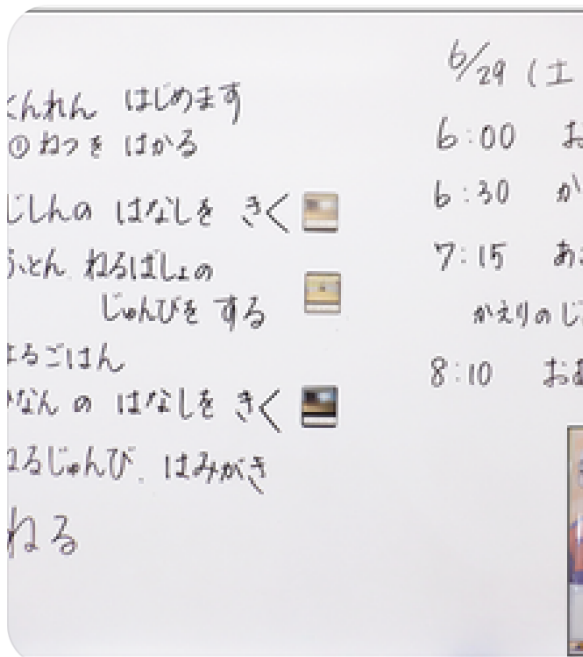 くんれん はじめます
① ねつを はかる
じしんの はなしを きく
ふとん ねるばしょの
じゅんびを する
よるごはん
ひなん の はなしを きく
ねるじゅんび、はみがき
ねる
6/29 (土
6:00 お
6:30 が
7:15 あ
かえりの じ
8:10 おあ